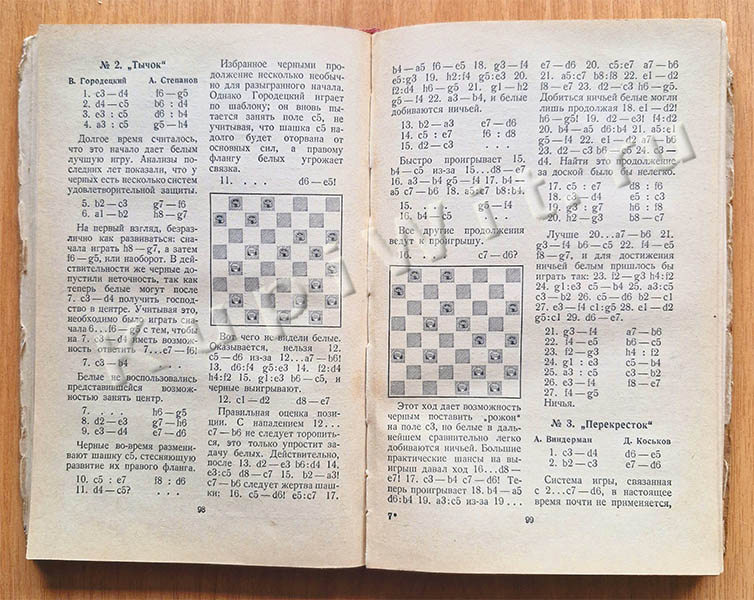 № 2. „Тычок"
В. Городецкий А. Степанов
1. c3—d4 f6—g5
2. d4—c5 b6 : d4
3. e3 : c5 d6 : b4
4. a3 : c5 g5—h4
Долгое время считалось,
что это начало дает белым
лучшую игру. Анализы по-
следних лет показали, что у
черных есть несколько систем
удовлетворительной защиты.
5. b2—c3 g7—f6
6. a1—b2 h8—g7
На первый взгляд, безраз-
лично как развиваться: сна-
чала играть h8—g7, а затем
f6—g5, или наоборот. В дей-
ствительности же черные до-
пустили неточность, так как
теперь белые могут после
7. c3—d4 получить господ-
ство в центре. Учитывая это,
необходимо было играть сна-
чала 6...f6—g5 с тем, чтобы
на 7. c3—d4 иметь возмож-
ность ответить 7...e7—f6!
7. c3—b4
Белые не воспользовались
представившейся возмож-
ностью занять центр.
7. . . . h6—g5
8. d2—e3 g7—h6
9. e3—d4 e7—d6
Черные во-время разменива-
ют шашку c5, стесняющую
развитие их правого фланга.
10. c5 : e7 f8 : d6
11. d4—c5? . . .
98
Избранное черными про-
должение несколько необыч-
но для разыгранного начала.
Однако Городецкий играет
по шаблону; он вновь пы-
тается занять поле c5, не
учитывая, что шашка c5 на-
долго будет оторвана от
основных сил, а правому
флангу белых угрожает
связка.
11. . . . d6—e5!
Вот чего не видели белые.
Оказывается, нельзя 12.
c5—d6 из-за 12...a7—b6!
13. d6:f4 g5:e3 14. f2:d4
h4:f2 15. g1:e3 b6—c5, и
черные выигрывают.
12. c1—d2 d8—e7
Правильная оценка пози-
ции. С нападением 12...
c7—b6 не следует торопить-
ся, это только упростит за-
дачу белых. Действительно,
после 13. d2—e3 b6:d4 14.
e3:c5 d8—c7 15. b2—a3!
c7—b6 следует жертва шаш-
ки: 16. c5—d6! e5:c7 17.
b4—a5 f6—e5 18. g3—f4
e5:g3 19. h2:f4 g5:e3 20.
f2:d4 h6—g5 21. g1—h2
g5—f4 22. a3—b4, и белые
добиваются ничьей.
13. b2—a3 e7—d6
14. c5 : e7 f6 : d8
15. d2—c3 . . .
Быстро проигрывает 15.
b4—c5 из-за 15...d8—e7
16. a3—b4 g5—f4 17. b4—
a5 c7—b6 18. a5:c7 b8:b4.
15. . . . g5—f4
16. b4—c5 . . .
Все другие продолжения
ведут к проигрышу.
16. . . . c7—d6?
Этот ход дает возможность
черным поставить „рожон"
на поле c3, но белые в даль-
нейшем сравнительно легко
добиваются ничьей. Большие
практические шансы на вы-
игрыш давал ход 16...d8—
e7! 17. c3—b4 c7—d6! Те-
перь проигрывает 18. b4—a5
d6:b4 19. a3:c5 из-за 19...
7* 99
e7—d6 20. c5:e7 a7—b6
21. a5:c7 b8:f8 22. e1—d2
f8—e7 23. d2—c3 h6—g5.
Добиться ничьей белые могли
лишь продолжая 18. e1—d2!
h6—g5! 19. d2—e3! f4:d2
20. b4—a5 d6:b4 21. a5:e1
g5—f4 22. e1—d2 a7—b6
23. d2—c3 b6—c5 24. c3—
d4. Найти это продолжение
за доской было бы нелегко.
17. c5 : e7 d8 : f6
18. c3—d4 e5 : c3
19. g3 : g7 h6 : f8
20. h2—g3 b8—c7
Лучше 20...a7—b6 21.
g3—f4 b6—c5 22. f4—e5
f8—g7, и для достижения
ничьей белым пришлось бы
играть так: 23. f2—g3 h4:f2
24. g1:e3 c5—b4 25. a3:c5
c3—b2 26. c5—d6 b2—c1
27. e3—f4 c1:g5 28. e1—d2
g5:c1 29. d6—e7.
21. g3—f4 a7—b6
22. f4—e5 b6—c5
23. f2—g3 h4 : f2
24. g1 : e3 c5—b4
25. a3 : c5 c3—b2
26. e3—f4 f8—e7
27. f4—g5
Ничья.
№ 3. „Перекресток"
А. Виндерман Д. Коськов
1. c3—d4 d6—e5
2. b2—c3 e7—d6
Система игры, связанная
с 2...c7—d6, в настоящее
время почти не применяется,
KupiVit.ru